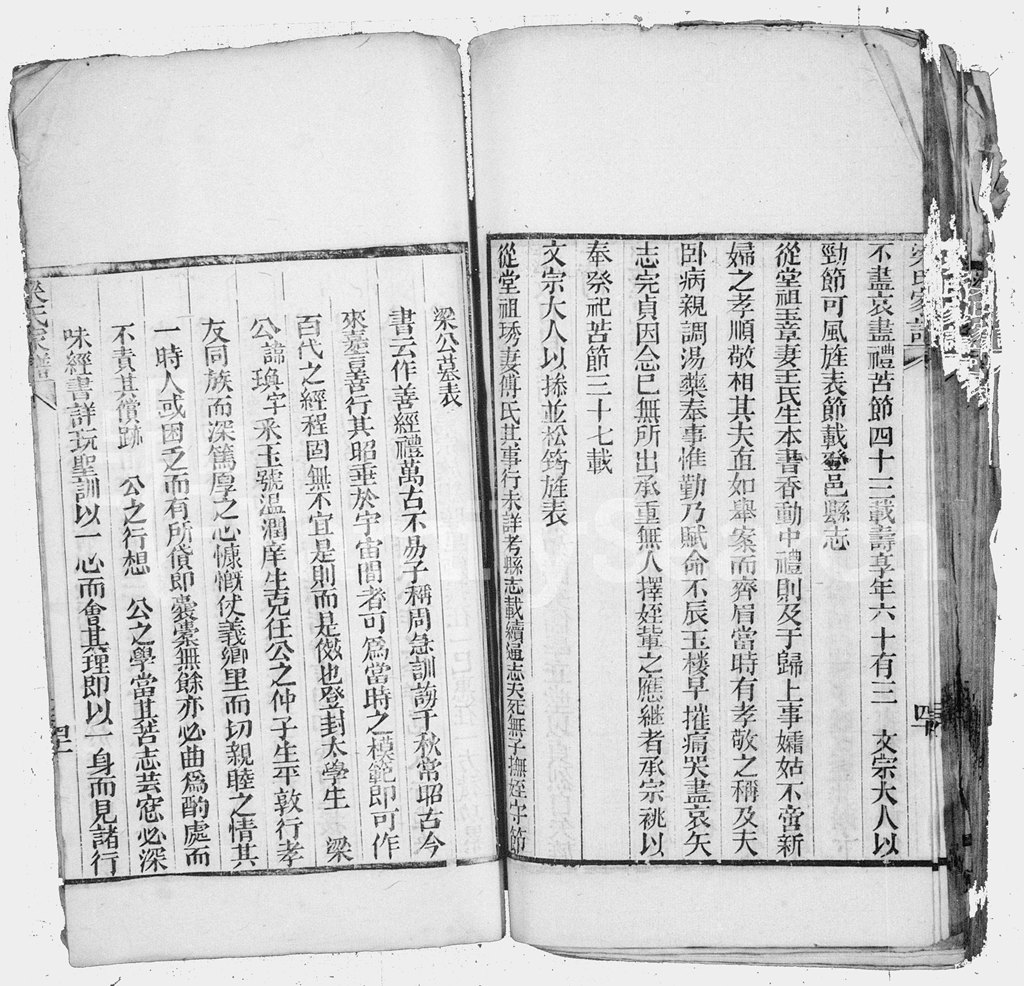 梁氏家譜
不盡哀盡禮苦節四十三載壽享年六十有三 文宗大人以
勁節可風旌表節載登邑縣志
從堂祖玉章妻王氏生本書香動中禮則及于歸上事孀姑不啻新
婦之孝順敬相其夫直如舉案而齊眉當時有孝敬之稱及夫
卧病親調湯藥奉事惟勤乃賦命不辰玉楼早摧痛哭盡哀矢
志完貞因念已無所出承重無人擇姪輩之應継者承宗祧以
奉祭祀苦節三十七載
文宗大人以操並松筠旌表
從堂祖琇妻傅氏其事行未詳考縣志載續通志夭死無子撫姪守節
梁公墓表
書云作善經禮萬古不易子稱周急訓誨千秋常昭古今
來嘉言善行其昭垂於宇宙間者可爲當時之模範即可作
百代之經程固無不宜是則而是傚也登封太學生 梁
公諱瑍字釆玉號温潤庠生克任公之仲子生平敦行孝
友同族而深篤厚之心慷慨仗義鄉里而切親睦之情其
一時人或困乏而有所貸即囊橐無餘亦必曲爲酌處而
不責其償跡 公之行想 公之學當其苦志芸窓必深
味經書詳玩聖訓以一心而會其理即以一身而見諸行
梁氏家譜